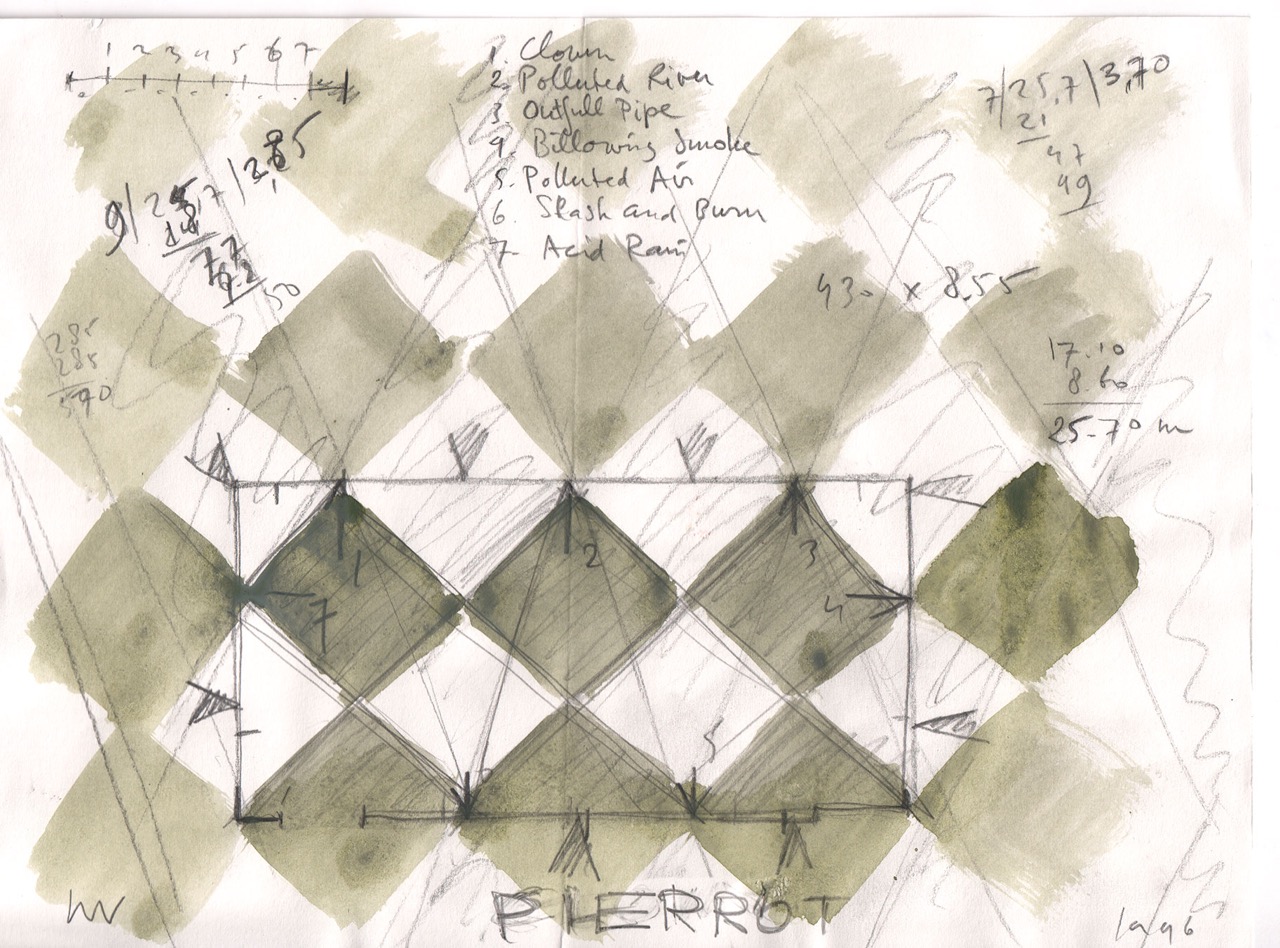 1 2 3 4 5 6 7
1. Clown
2. Polluted River
3 Outfull Pipe
4. Billowing Smoke
5. Polluted Air
6. Slash and Burn
7. Acid Rain
7/25,7/3,70
21
47
49
50
430 x 8.55
285
285
590
17.10
8.60
25.70 m
1
2
3
4
7
5
PIERROT
1996